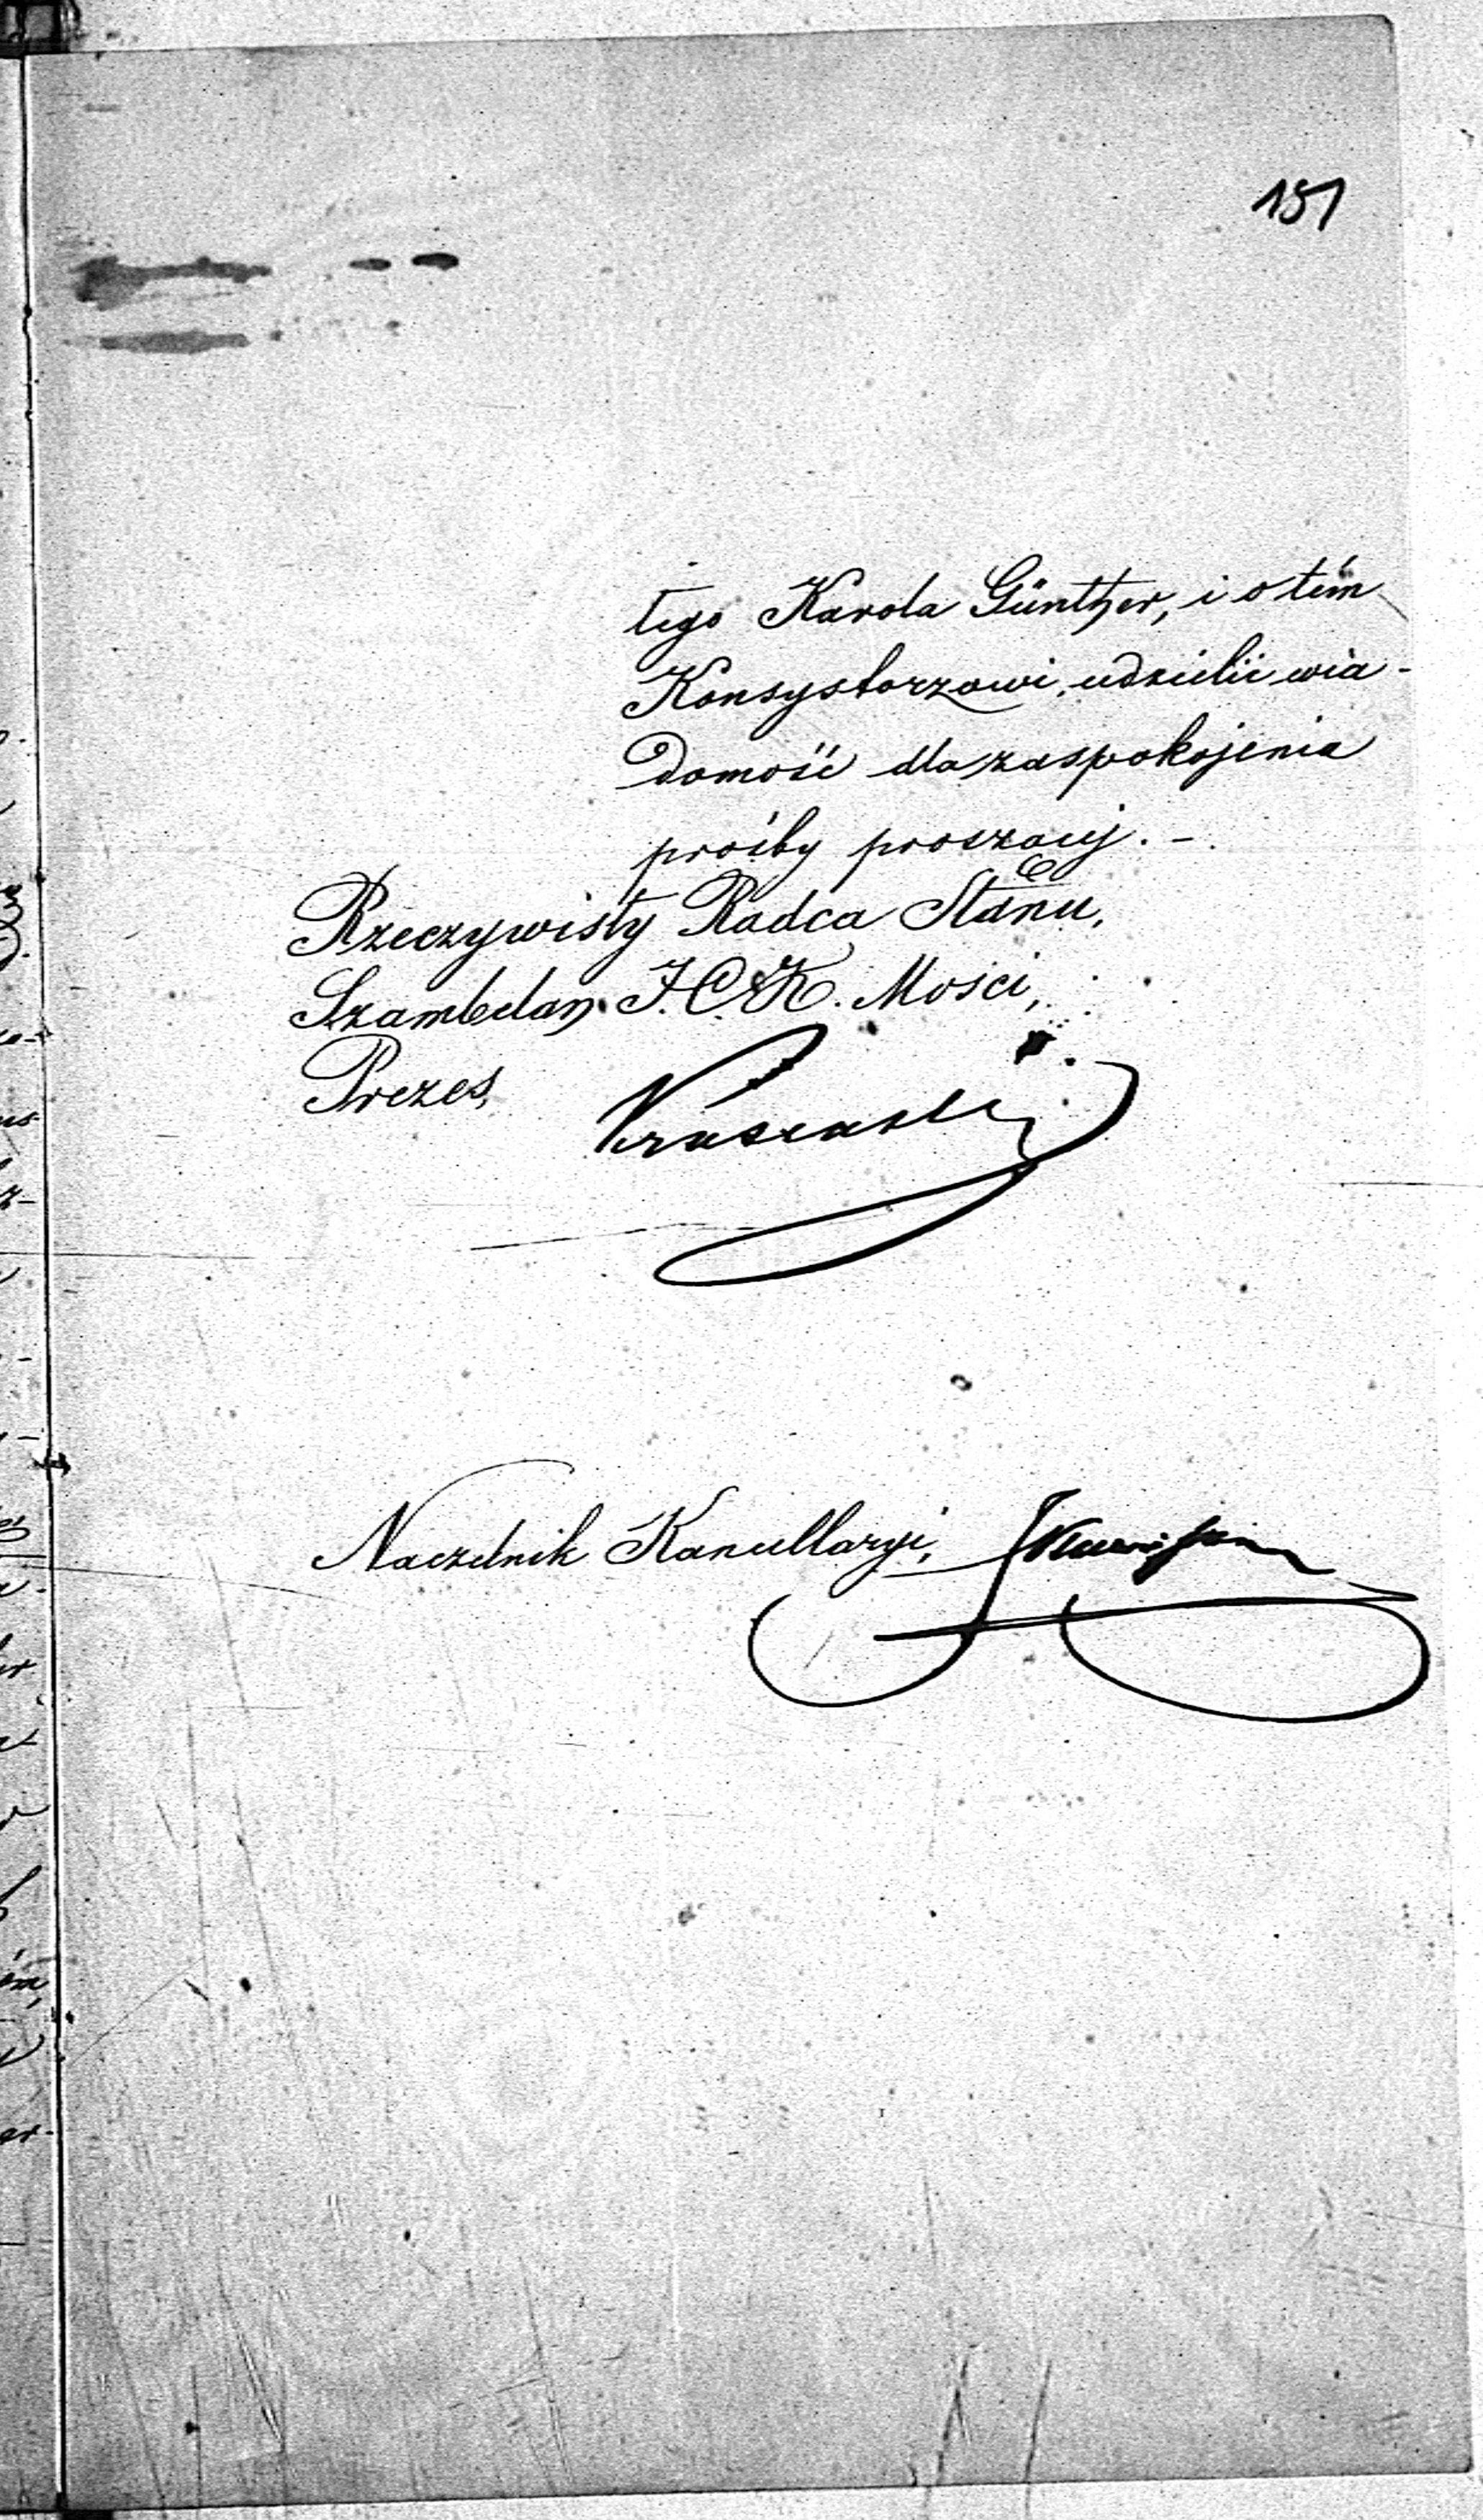 151
tego Karola Günther, i o tém
Konsystorzowi, udzielić wia-
domość dla zaspokojenia
prośby proszącej. -
Rzeczywisty Radca Stanu,
Szambelan J. C. K. Mości,
Prezes,
Naczelnik Kancellaryi,